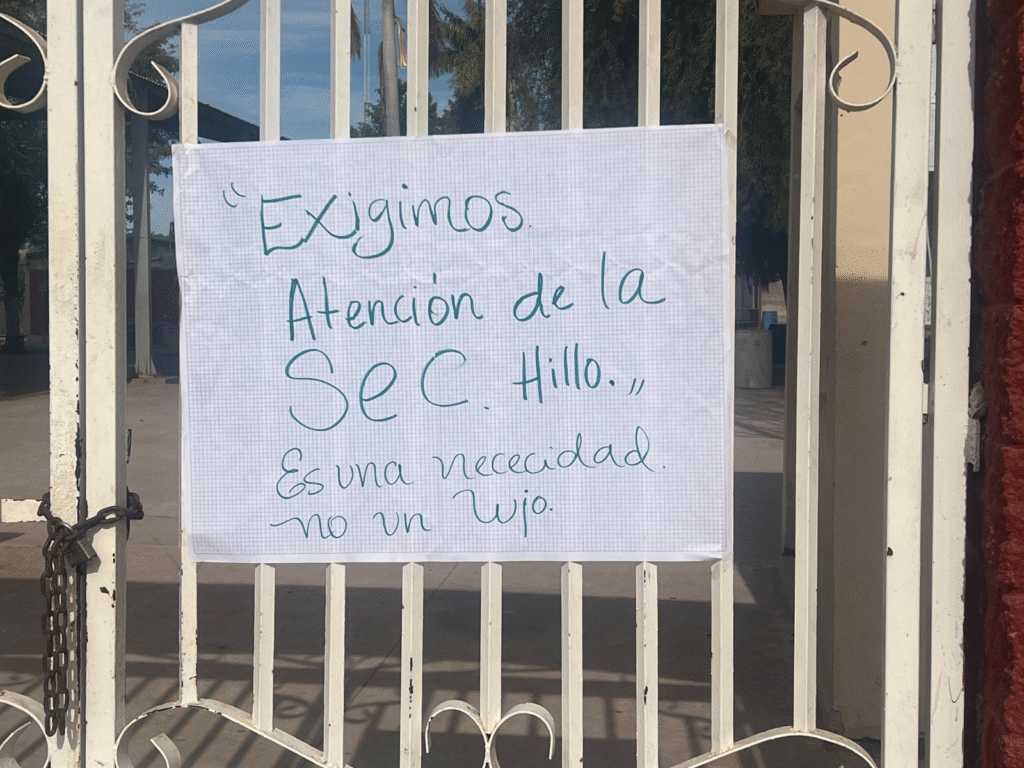 “Exigimos.
Atención de la
Sec. Hillo.”
Es una nececidad.
no un lujo.